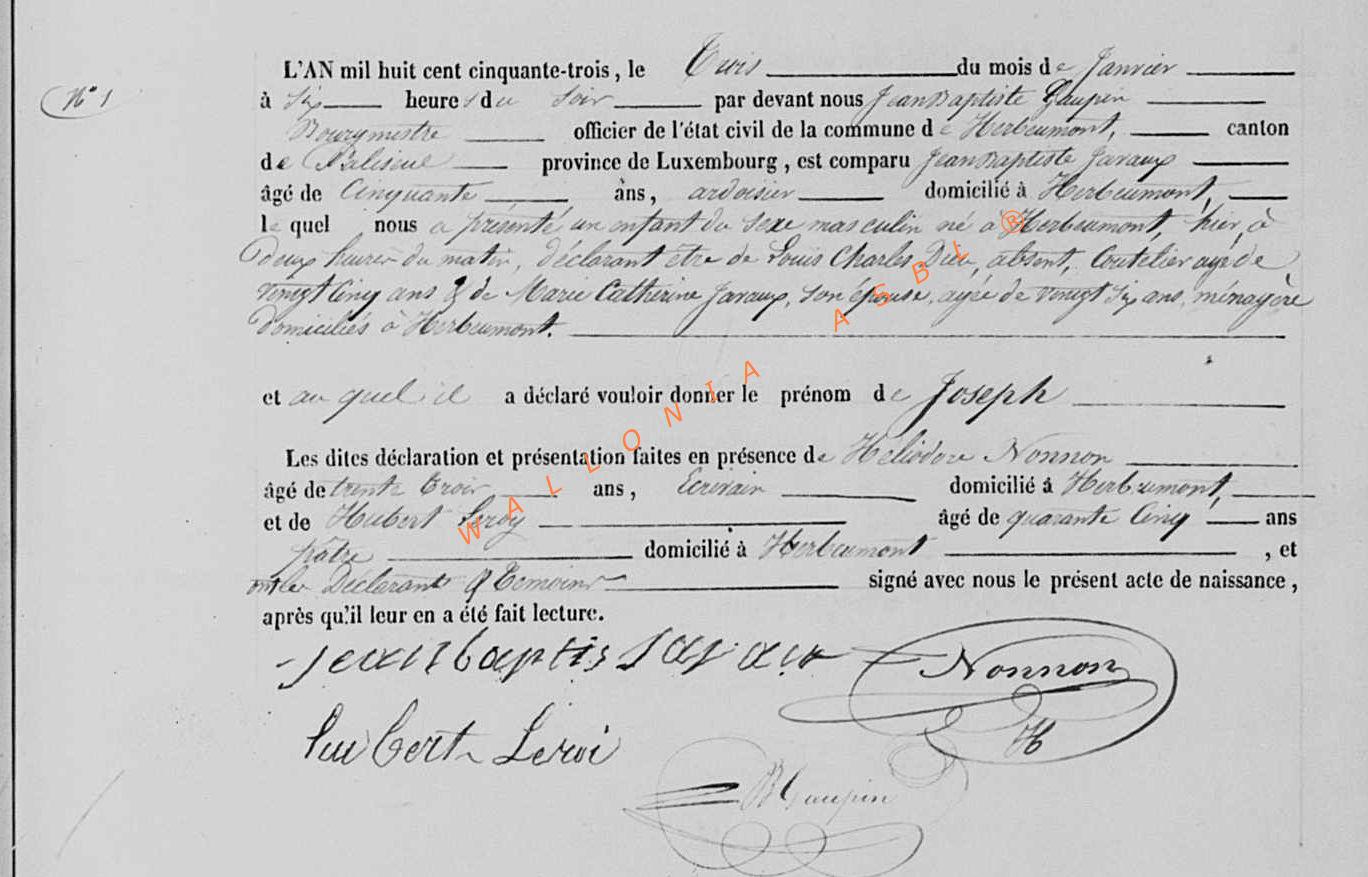 N° 1
L'AN mil huit cent cinquante-trois, le Trois du mois de Janvier
à Six heures du Soir par devant nous Jean Baptiste Gaupin
Bourgmestre officier de l'état civil de la commune de Herbeumont, canton
de Paliseul province de Luxembourg, est comparu Jean Baptiste Javaux
âgé de Cinquante ans, ardoisier domicilié à Herbeumont,
lequel nous a présenté un enfant du sexe masculin né à Herbeumont, hier, à
Deux heures du matin, déclarant être de Louis Charles Dieu, absent, Coutelier agé de
vingt Cinq ans & de Marie Catherine Javaux, son épouse, agée de vingt Six ans, ménagère
Domiciliés à Herbeumont.
et au quel il a déclaré vouloir donner le prénom de Joseph
Les dites déclaration et présentation faites en présence de Héliodore Nonnon
âgé de trente Trois ans, Ecrivain domicilié à Herbeumont,
et de Hubert Leroy âgé de quarante Cinq ans
pâtre domicilié à Herbeumont, et
ont les Déclarant & Temoins signé avec nous le présent acte de naissance,
après qu'il leur en a été fait lecture.
Jean baptis Javaux Nonnon
H
hubert Leroi
JB Gaupin
WALLONIA ASBL ®